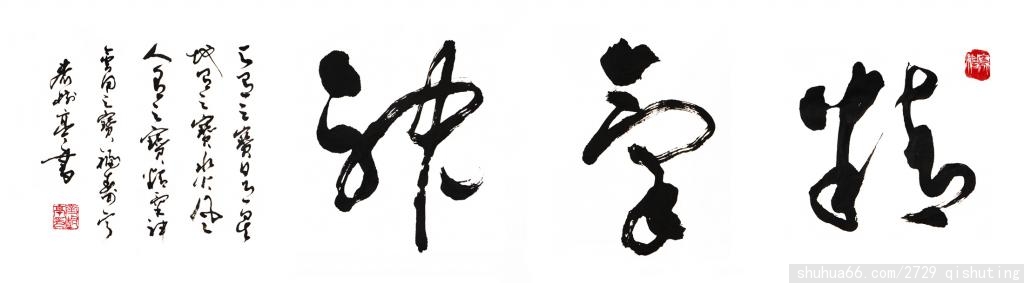 精氣神
天有三寶日月星
地有三寶水火風
人有三寶精氣神
用三寶福壽
齊樹亭書
shuhua66.com/2729 qishuting